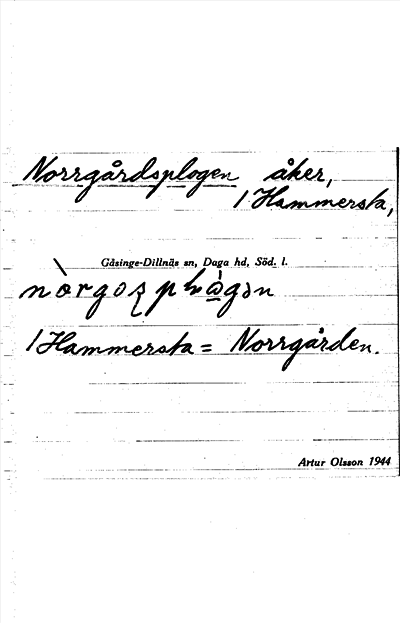 Norrgårdsplogen åker,
1 Hammersta,
Gåsinge-Dillnäs sn, Daga hd, Söd. l.
1 Hammersta = Norrgården.
Artur Olsson 1944